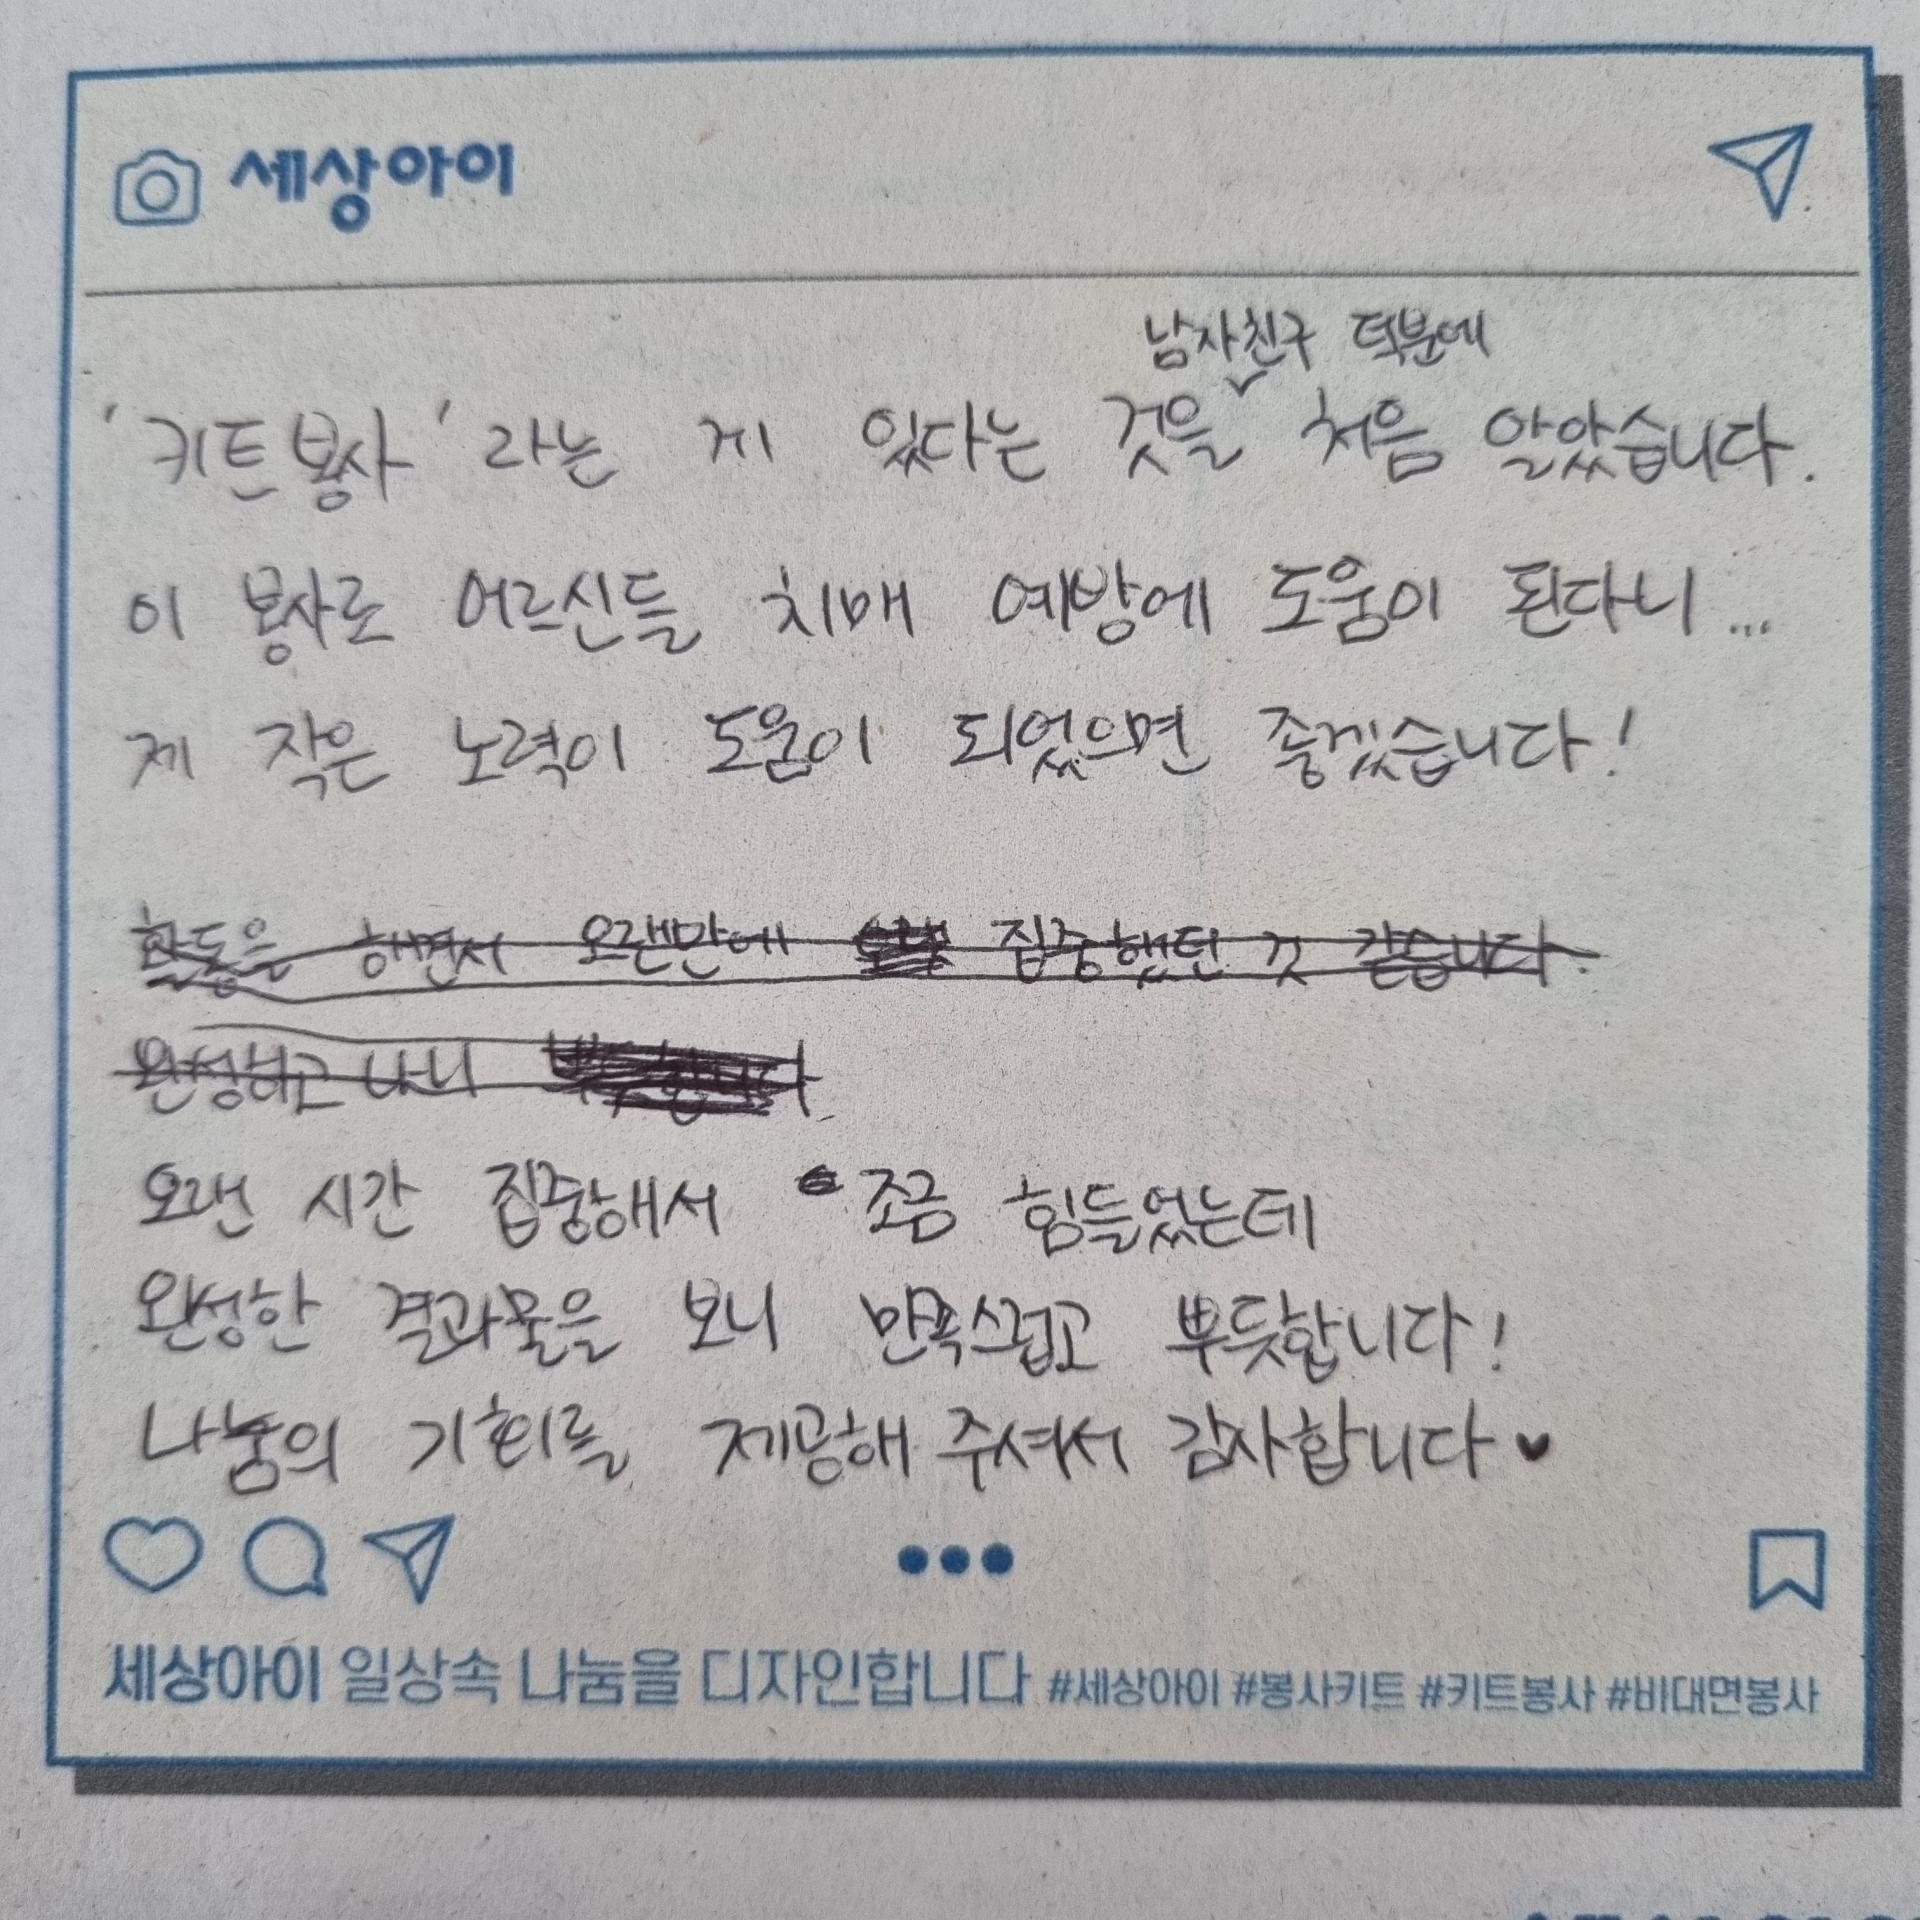 세상아이
남자친구 덕분에
'키트봉사'라는 게 있다는 것을 처음 알았습니다.
이 봉사로 어르신들 치매 예방에 도움이 된다니...
제 작은 노력이 도움이 되었으면 좋겠습니다!
활동은 해면서 오랜만에 집중했던 것 같습니다.
완성하고 나니
오랜 시간 집중해서 조금 힘들었는데
완성한 결과물을 보니 만족스럽고 뿌듯합니다!
나눔의 기회를 제공해 주셔서 감사합니다♥
세상아이 일상속 나눔을 디자인합니다 #세상아이 #봉사키트 #키트봉사 #비대면봉사